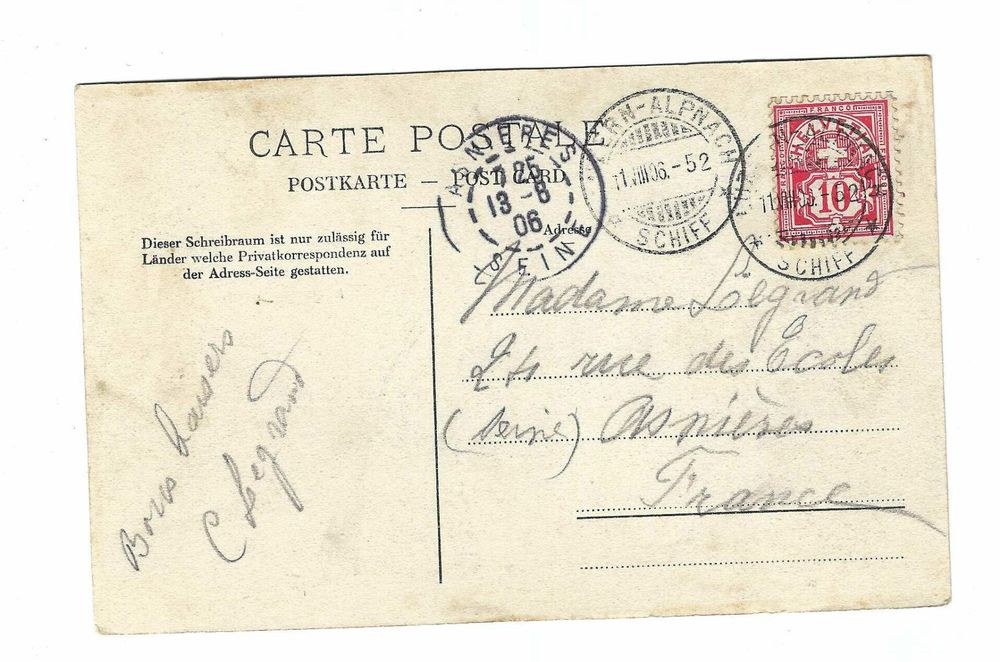 CARTE POSTALE
POSTKARTE — POST CARD
Adresse
Dieser Schreibraum ist nur zulässig für
Länder welche Privatkorrespondenz auf
der Adress-Seite gestatten.
ASNIERES
13 - 8
06
SEINE
ZERN-ALPNACH
11.VIII.06.-52
SCHIFF
FRANCO
HELVETIA
10
11.VIII.06.-52
SCHIFF
Madame Legrand
24 rue des Écoles
(Seine) Asnières
France
Bons baisers
C Legrand